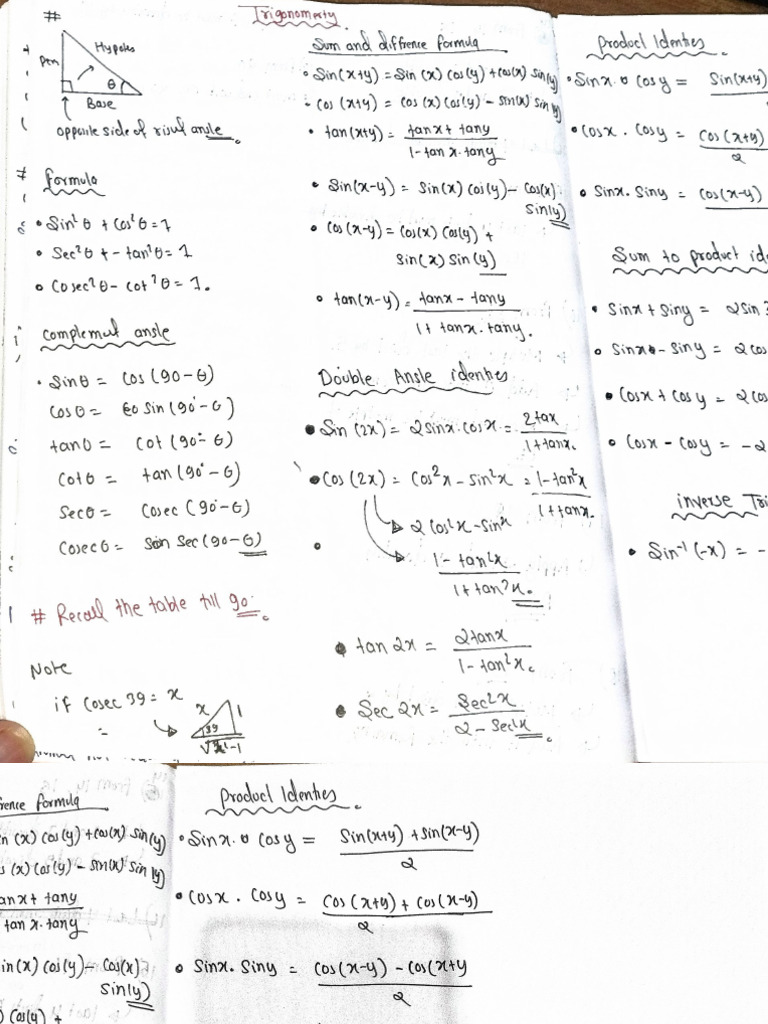 Trigonomesty
#
Pen
Hypotes
θ
Base
opposite side of risul angle.
# formula
• Sin²θ + Cos²θ = 1
• Sec²θ + - tan²θ = 1
• Cosec²θ - cot²θ = 1.
Complemut angle
• Sinθ = Cos (90-θ)
Cosθ = Sin (90°-θ)
tanθ = Cot (90°-θ)
Cotθ = tan (90°-θ)
Secθ = Cosec (90-θ)
Cosecθ = Sec (90-θ)
# Recall the table till 90°.
Note
if Cosec 39 = x
=
x
1
39
√x²-1
Sum and diffrence formula
• Sin(x+y) = Sin (x) Cos(y) + Cos(x) Sin(y)
• Cos (x+y) = Cos (x) Cos(y) - Sin(x) Sin(y)
• tan(x+y) = tanx + tany
1 - tan x. tany
• Sin(x-y) = Sin(x) Cos(y) - Cos(x)
Sin(y)
• Cos(x-y) = Cos(x) Cos(y) +
Sin(x) Sin(y)
• tan(x-y) = tanx - tany
1 + tanx. tany.
Double Angle identies
• Sin (2x) = 2 Sinx. Cos x = 2 tax
1 + tanx.
• Cos (2x) = Cos²x - Sin²x = 1 - tan²x
1 + tanx.
2 Cos²x - Sin²x
1 - tan²x
1 + tan²x.
• tan 2x = 2 tanx
1 - tan²x.
• Sec 2x = Sec²x
2 - Sec²x.
Product Identies
• Sinx. Cosy = Sin(x+y)
• Cosx. Cosy = Cos (x+y)
2
• Sinx. Siny = Cos(x-y)
Sum to product ide
• Sinx + Siny = 2 Sin
• Sinx - Siny = 2 Cos
• Cosx + Cosy = 2 Cos
• Cosx - Cosy = -2
inverse Tri
• Sin⁻¹ (-x) = -
rence formula
n (x) Cos(y) + Cos(x) Sin(y)
s (x) Cos(y) - Sin(x) Sin(y)
anx + tany
tan x. tany
in(x) Cos(y) - Cos(x)
Sin(y)
) Cos(y) +
Product Identies
• Sinx. Cosy = Sin(x+y) + Sin(x-y)
2
• Cosx. Cosy = Cos (x+y) + Cos (x-y)
2
• Sinx. Siny = Cos(x-y) - Cos(x+y
2